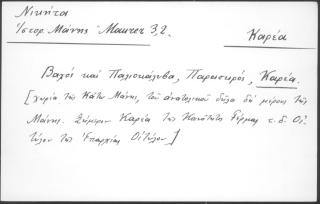 Νικήτα
Ἱστορ. Μάνης - Maurer 3,2.
Καρέα
Βαχοί καί Παλιοκάλυβα, Παρασυρός, Καρέα.
[χωρία τῆς Κάτω Μάνης, τοῦ ἀνατολικοῦ δῆλα δή μέρους τῆς
Μάνης. Σήμερον Καρέα τῆς Κοινότητος Γέρμας τ. δ. Οἰ-
τύλου τῆς Ἐπαρχίας Οἰτύλου]